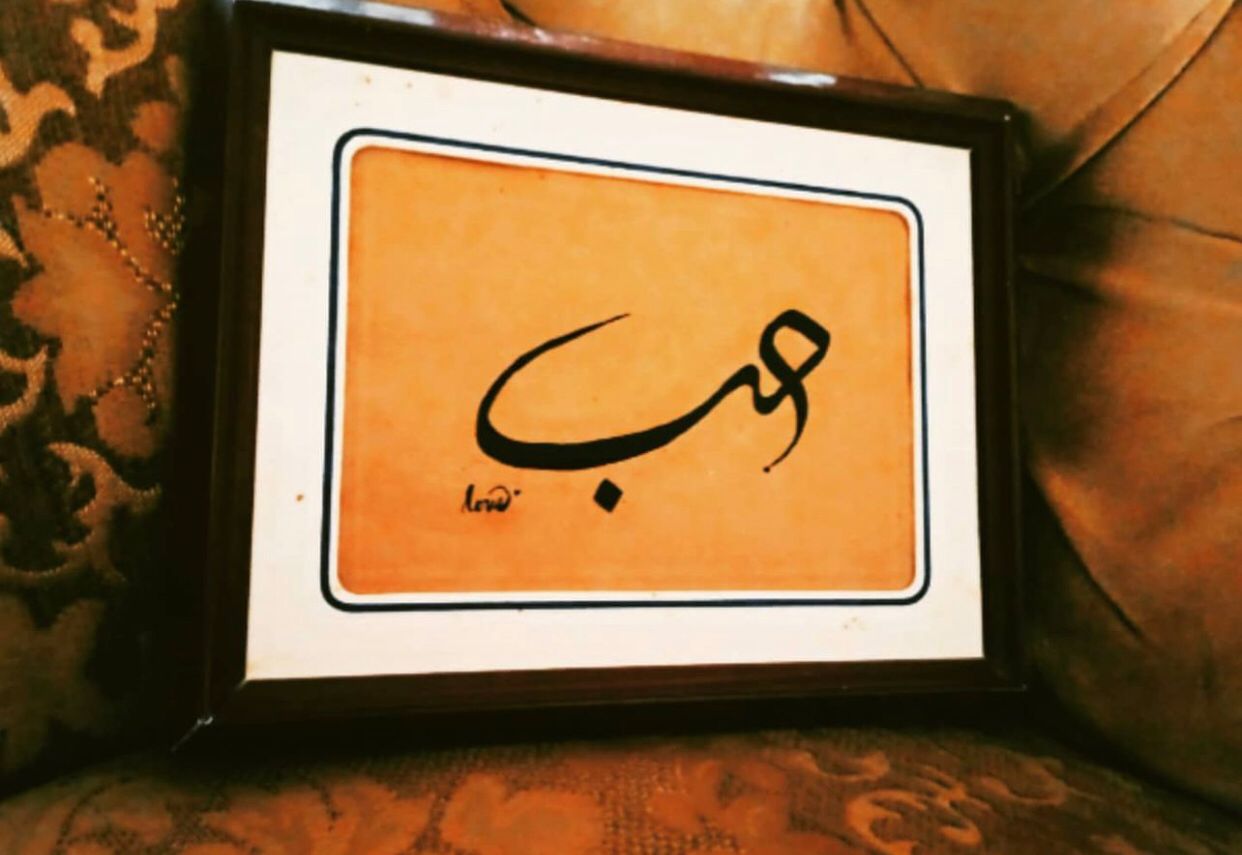 حب
love